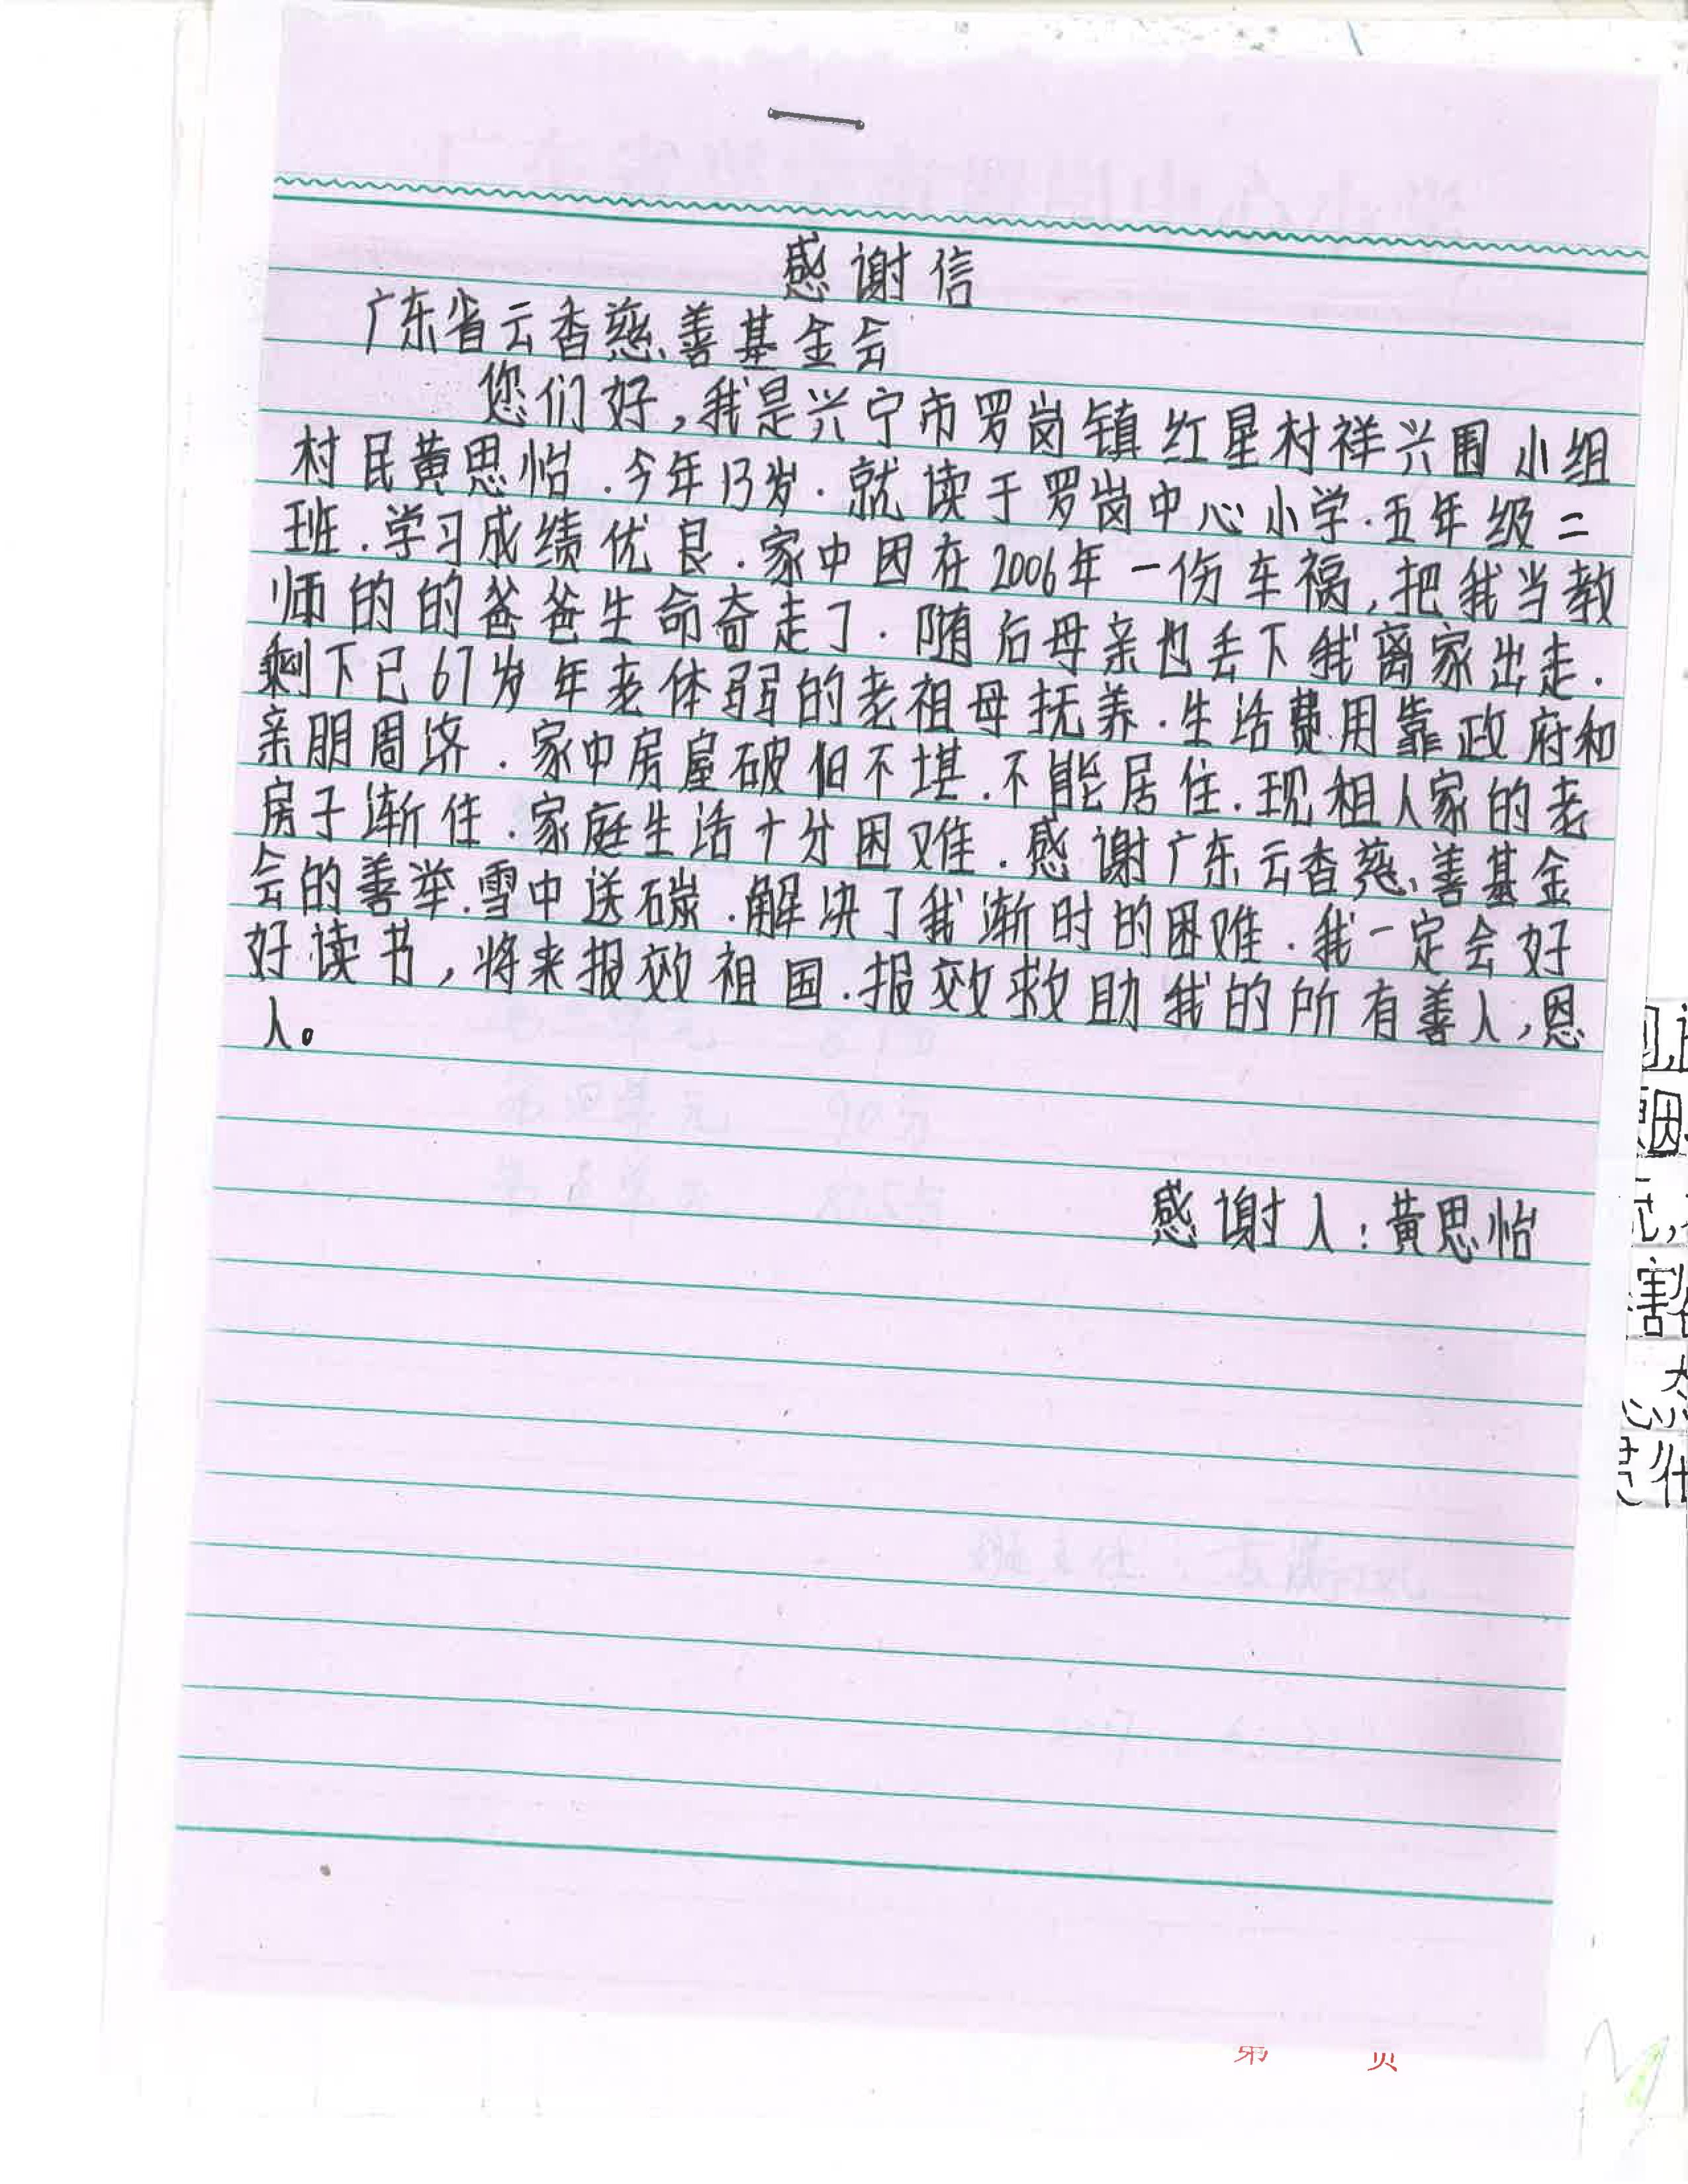 感谢信
广东省云香慈善基金会
您们好,我是兴宁市罗岗镇红星村祥兴围小组
村民黄思怡.今年13岁.就读于罗岗中心小学.五年级二
班.学习成绩优良.家中因在2006年一伤车祸,把我当教
师的的爸爸生命奇走了.随后母亲也丢下我离家出走.
剩下已67岁年老体弱的老祖母抚养.生活费用靠政府和
亲朋周济.家中房屋破旧不堪.不能居住.现租人家的老
房子渐住.家庭生活十分困难.感谢广东云香慈善基金
会的善举.雪中送碳.解决了我渐时的困难.我一定会好
好读书,将来报效祖国.报效救助我的所有善人,恩
人。
感谢人:黄思怡
第 页